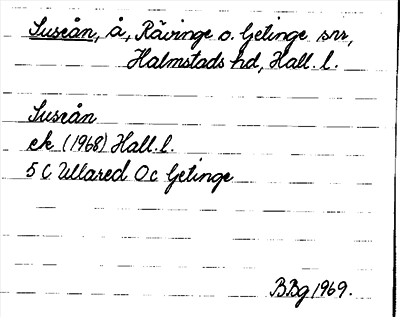 Suseån, å, Rävinge o. Getinge snr,
Halmstads hd, Hall. l.
Suseån
ek (1968) Hall. l.
5 C Ullared 0c Getinge
BBg 1969.